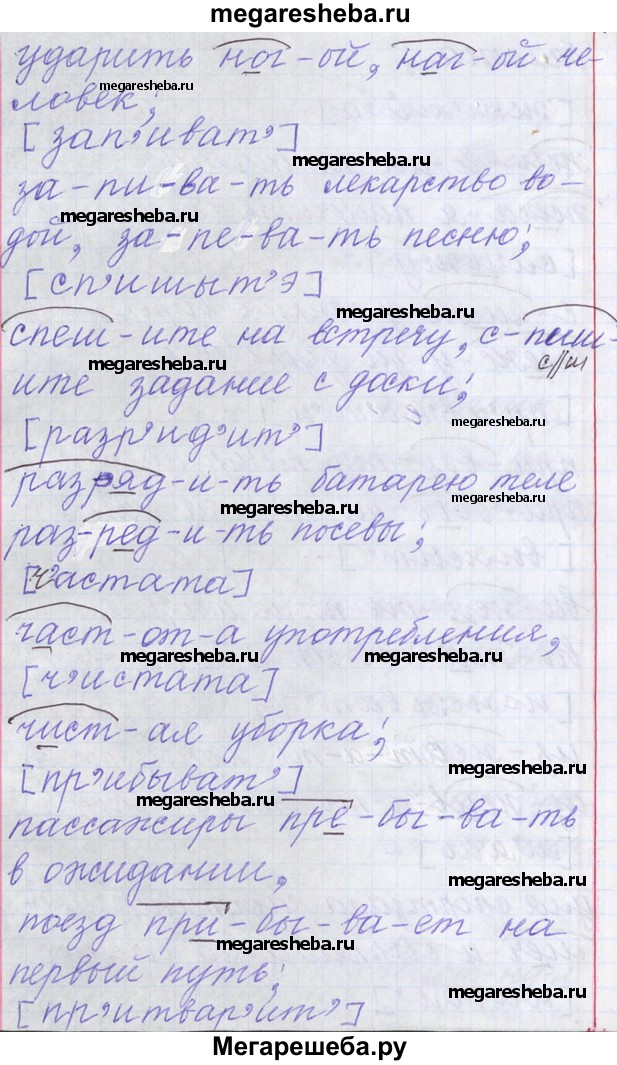 megaresheba.ru
ударить ног-ой, наг-ой че-
megaresheba.ru
ловек;
[зап’иват’]
megaresheba.ru
за-пи-ва-ть лекарство во-
megaresheba.ru
дой, за-пе-ва-ть песню;
[сп’ишыт’э]
megaresheba.ru
спеш-ите на встречу, с-пиш-
с//ш
megaresheba.ru
ите задание с доски;
[разр’ид’ит’]
megaresheba.ru
разряд-и-ть батарею теле
megaresheba.ru
раз-ред-и-ть посевы;
[ч’астата]
част-от-а употребления,
megaresheba.ru megaresheba.ru
[ч’истата]
чист-ая уборка;
[пр’ибыват’]
megaresheba.ru
megaresheba.ru
пассажиры пре-бы-ва-ть
в ожидании,
megaresheba.ru
поезд при-бы-ва-ет на
megaresheba.ru
первый путь;
megaresheba.ru
[пр’итвар’ит’]
Мегарешеба.ру